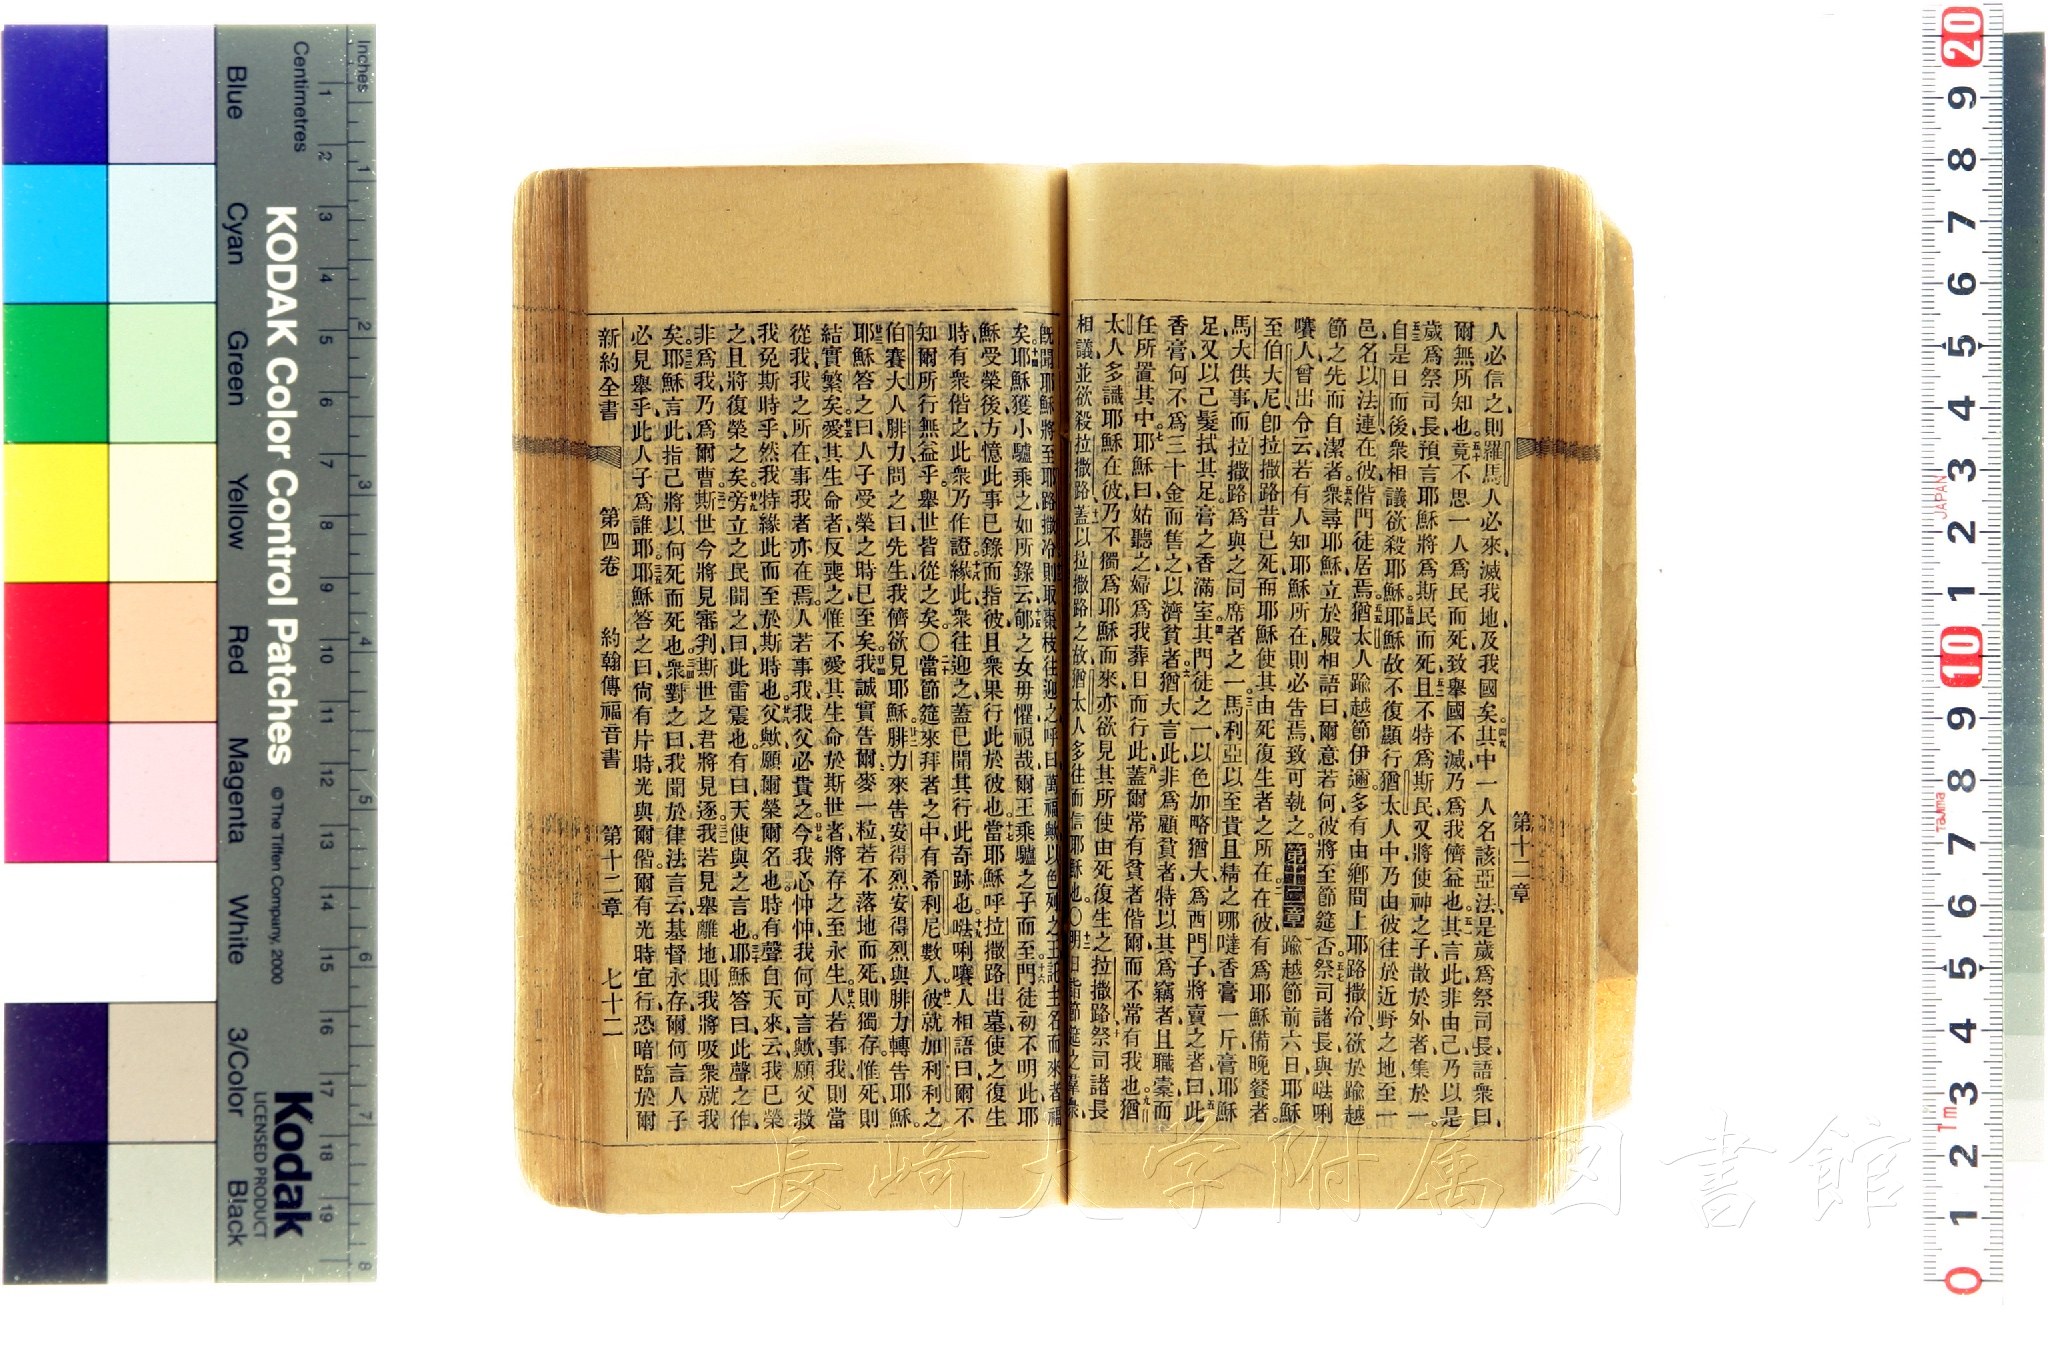 第十二章
人必信之則羅馬人必來滅我地及我國矣其中一人名該亞法是歲爲祭司長語衆曰
爾無所知也竟不思一人爲民而死致舉國不滅乃爲我儕益也其言此非由己乃以是
歲爲祭司長預言耶穌將爲斯民而死且不特爲斯民又將使神之子散於外者集於一
自是日而後衆相議欲殺耶穌耶穌故不復顯行猶太人中乃由彼往於近野之地至一
邑名以法連在彼偕門徒居焉猶太人踰越節伊邇多有由鄉間上耶路撒冷欲於踰越
節之先而自潔者衆尋耶穌立於殿相語曰爾意若何彼將至節筵否祭司諸長與𠵽唎
㘔人曾出令云若有人知耶穌所在則必告焉致可執之第十二章踰越節前六日耶穌
至伯大尼卽拉撒路昔已死而耶穌使其由死復生者之所在在彼有爲耶穌備晚餐者
馬大供事而拉撒路爲與之同席者之一馬利亞以至貴且精之哪噠香膏一斤膏耶穌
足又以己髮拭其足膏之香滿室其門徒之一以色加略猶大爲西門子將賣之者曰此
香膏何不爲三十金而售之以濟貧者猶大言此非爲顧貧者特以其爲竊者且職橐而
任所置其中耶穌曰姑聽之婦爲我葬日而行此蓋爾常有貧者偕爾而不常有我也猶
太人多識耶穌在彼乃不獨爲耶穌而來亦欲見其所使由死復生之拉撒路祭司諸長
相議並欲殺拉撒路蓋以拉撒路之故猶太人多往而信耶穌也〇明日詣節筵之羣衆
旣聞耶穌將至耶路撒冷則取棗枝往迎之呼曰萬福歟以色列之王託主名而來者福
矣耶穌獲小驢乘之如所錄云郇之女毋懼視哉爾王乘驢之子而至門徒初不明此耶
穌受榮後方憶此事已錄而指彼且衆果行此於彼也當耶穌呼拉撒路出墓使之復生
時有衆偕之此衆乃作證緣此衆往迎之蓋已聞其行此奇跡也𠵽唎㘔人相語曰爾不
知爾所行無益乎舉世皆從之矣〇當節筵來拜者之中有希利尼數人彼就加利利之
伯賽大人腓力問之曰先生我儕欲見耶穌腓力來吿安得烈安得烈與腓力轉吿耶穌
耶穌答之曰人子受榮之時已至矣我誠實吿爾麥一粒若不落地而死則獨存惟死則
結實繁矣愛其生命者反喪之惟不愛其生命於斯世者將存之至永生人若事我則當
從我我之所在事我者亦在焉人若事我我父必貴之今我心忡忡我何可言歟願父救
我免斯時乎然我特緣此而至於斯時也父歟願爾榮爾名也時有聲自天來云我已榮
之且將復榮之矣旁立之民聞之曰此雷震也有曰天使與之言也耶穌答曰此聲之作
非爲我乃爲爾曹斯世今將見審判斯世之君將見逐我若見舉離地則我將吸衆就我
矣耶穌言此指己將以何死而死也衆對之曰我聞於律法言云基督永存爾何言人子
必見舉乎此人子爲誰耶耶穌答之曰尙有片時光與爾偕爾有光時宜行恐暗臨於爾
新約全書 第四卷 約翰傳福音書 第十二章 七十二
KODAK Color Control Patches © The Tiffen Company, 2000
Kodak
LICENSED PRODUCT
Inches 1 2 3 4 5 6 7 8
Centimetres 1 2 3 4 5 6 7 8 9 10 11 12 13 14 15 16 17 18 19
Blue
Cyan
Green
Yellow
Red
Magenta
White
3/Color
Black
20 9 8 7 6 5 4 3 2 1 10 9 8 7 6 5 4 3 2 1 0
JAPAN
Tajima
Tm
長崎大学附属図書館